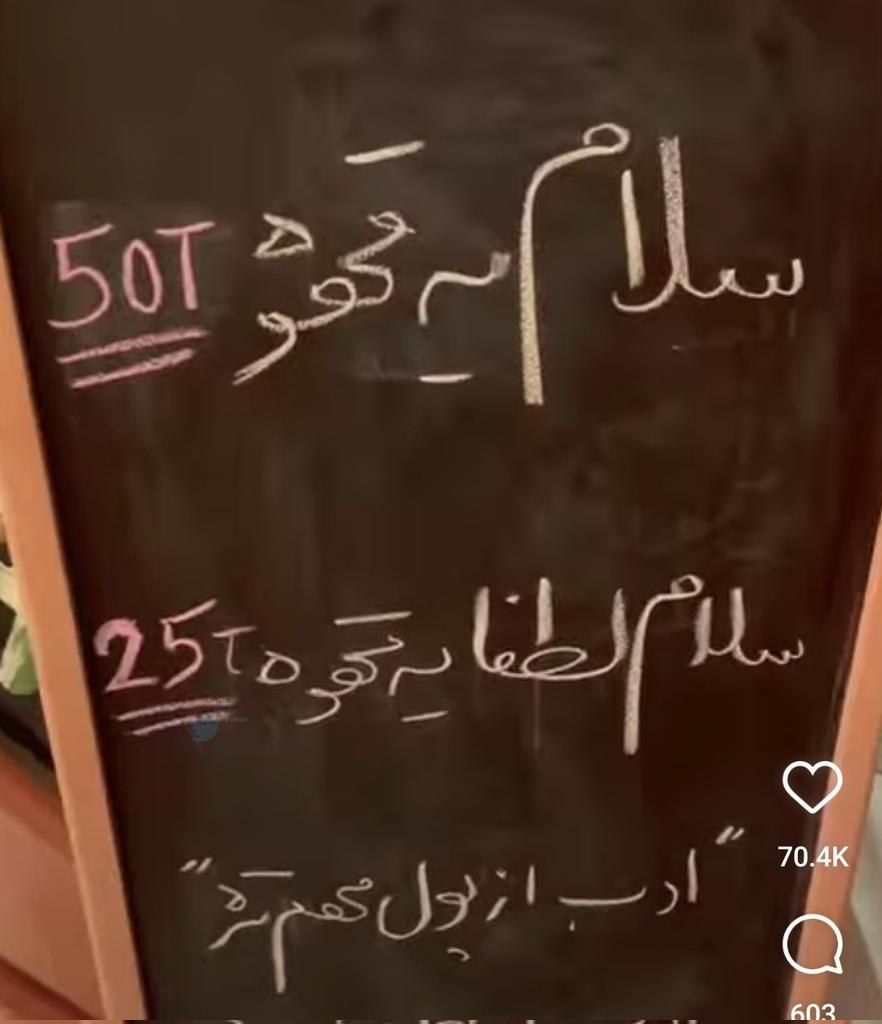 سلام یه قهوه 50T
سلام لطفا یه قهوه 25T
"ادب از پول مهم تره"
70.4K
603